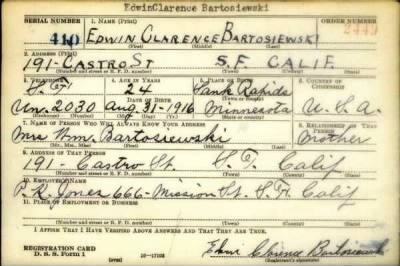 EdwinClarence Bartosiewski
SERIAL NUMBER 1. NAME (Print) ORDER NUMBER
410 EDWIN CLARENCE BARTOSIEWSKI 2449
(First) (Middle) (Last)
2. ADDRESS (Print)
191-CASTRO ST S.F. CALIF.
(Number and street or R. F. D. number) (Town) (County) (State)
3. TELEPHONE 4. AGE IN YEARS 5. PLACE OF BIRTH 6. COUNTRY OF CITIZENSHIP
S.F. 24 Sank Rapids
DATE OF BIRTH (Town or county)
Un. 2030 Aug. 31-1916 Minnesota U.S.A
(Exchange) (Number) (Mo.) (Day) (Yr.) (State or country)
7. NAME OF PERSON WHO WILL ALWAYS KNOW YOUR ADDRESS 8. RELATIONSHIP OF THAT PERSON
Mrs Wm. Bartosiewski Mother
(Mr., Mrs., Miss) (First) (Middle) (Last)
9. ADDRESS OF THAT PERSON
191- Castro St. S.F. Calif
(Number and street or R. F. D. number) (Town) (County) (State)
10. EMPLOYER'S NAME
Jones 666-Mission St. S.F. Calif
11. PLACE OF EMPLOYMENT OR BUSINESS
(Number and street or R. F. D. number) (Town) (County) (State)
I AFFIRM THAT I HAVE VERIFIED ABOVE ANSWERS AND THAT THEY ARE TRUE.
REGISTRATION CARD
D. S. S. Form 1 Clarence Bartosiewski
(Registrant's signature)